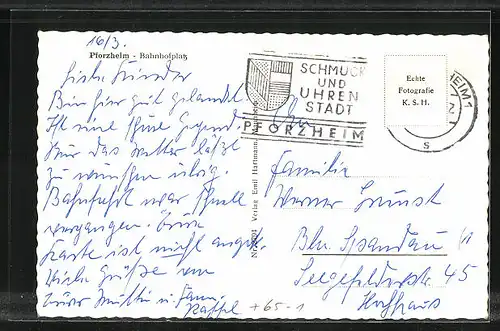 16/3.
Pforzheim - Bahnhofplatz
Liebe Kinder
Bin hier gut gelandet.
Ist eine schöne Gegend.
Nur das Wetter läßt
zu wünschen übrig.
Bahnfahrt war schnell
vergangen. Eure
Karte ist nicht angek.
Viele Grüße von
Eurer Mutti u. Fam.
+65-1
Verlag Emil Hartmann
SCHMUCK
UND
UHREN
STADT
PFORZHEIM
HEIM 1
s
Echte
Fotografie
K. S. H.
An
Familie
Werner
Bln. Spandau
Seegefelderstr. 45
Hochhaus